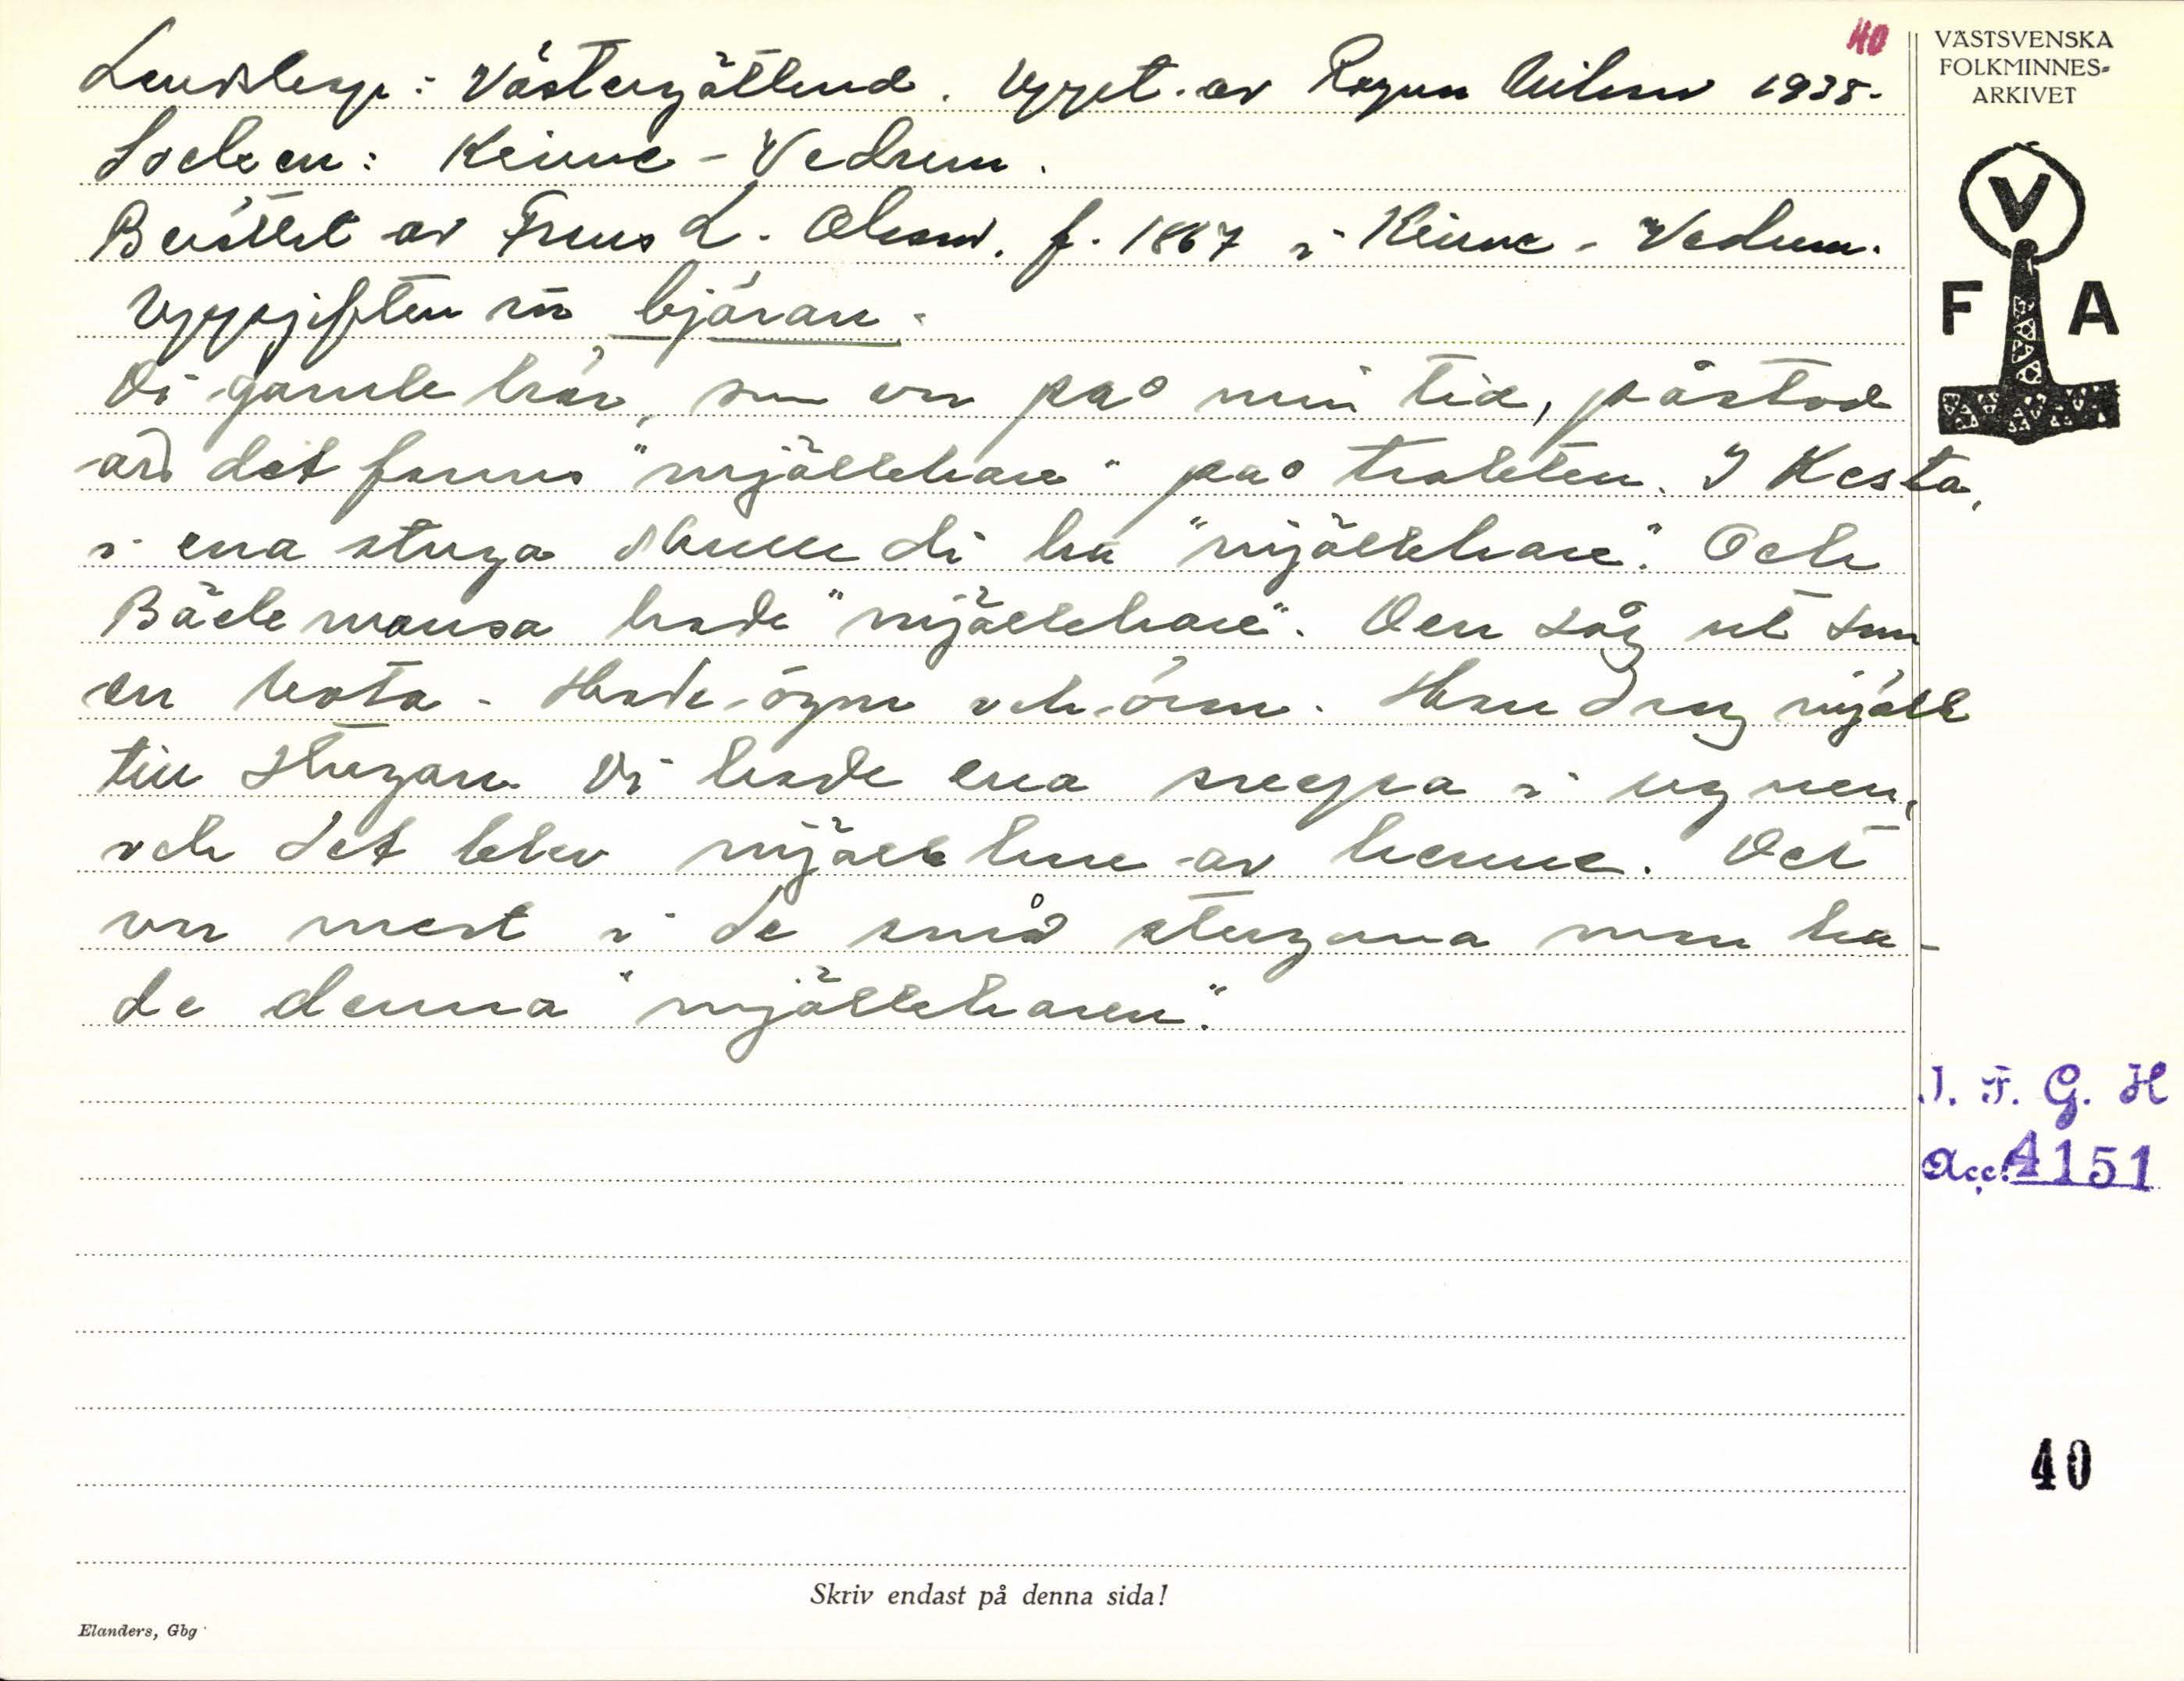 40
Landskap: Västergötland. Uppt. av Ragnar Nilsson 1935.
Socken: Kinne-Vedum.
Berättat av Frans L. Olsson. f. 1867 i Kinne-Vedum.
Uppgiften rör bjäran.
Di gamle här, som var på min tid, påstod
att det fanns "mjölkhare" på trakten. I Kesta,
i ena stuga skulle di ha "mjölkhare". Och
Bäckmansa hade "mjölkhare". Den såg ut som
en Hade ögon och öron. Han drog mjölk
till stugan. Di hade ena i ugnen,
och det blev mjölkhare av henne. Det
var mest i de små stugorna man ha-
de denna "mjölkharen".
VÄSTSVENSKA
FOLKMINNES-
ARKIVET
V
F A
I. F. G. H
Acc. 4151
40
Skriv endast på denna sida!
Elanders, Gbg